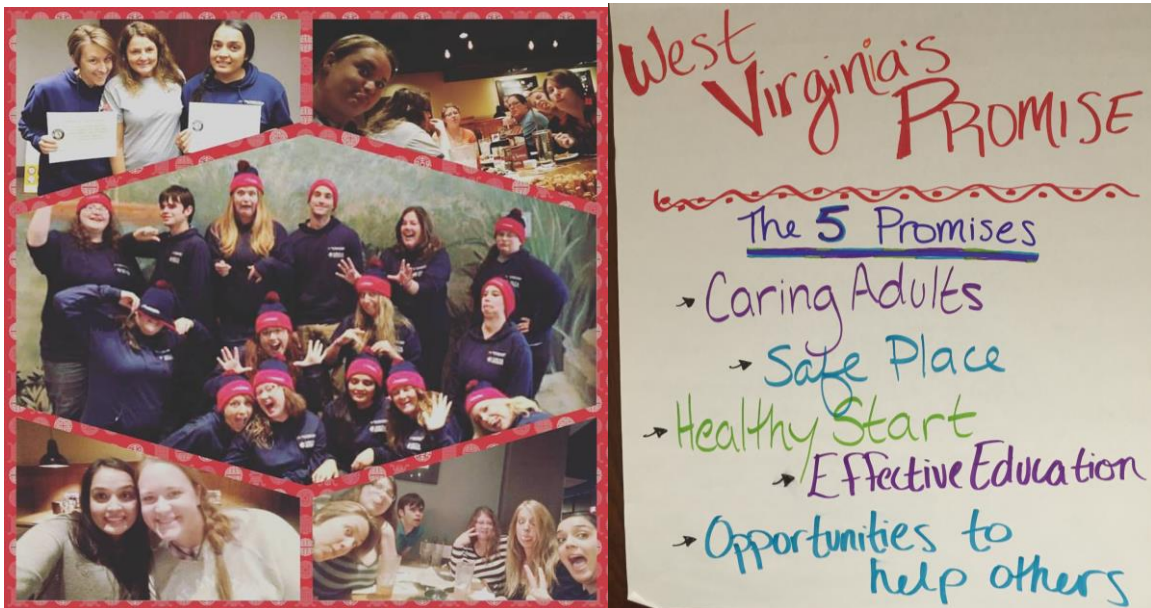 West
Virginia's
PROMISE
The 5 Promises
→ Caring Adults
→ Safe Place
→ Healthy Start
→ Effective Education
→ Opportunities to
help others